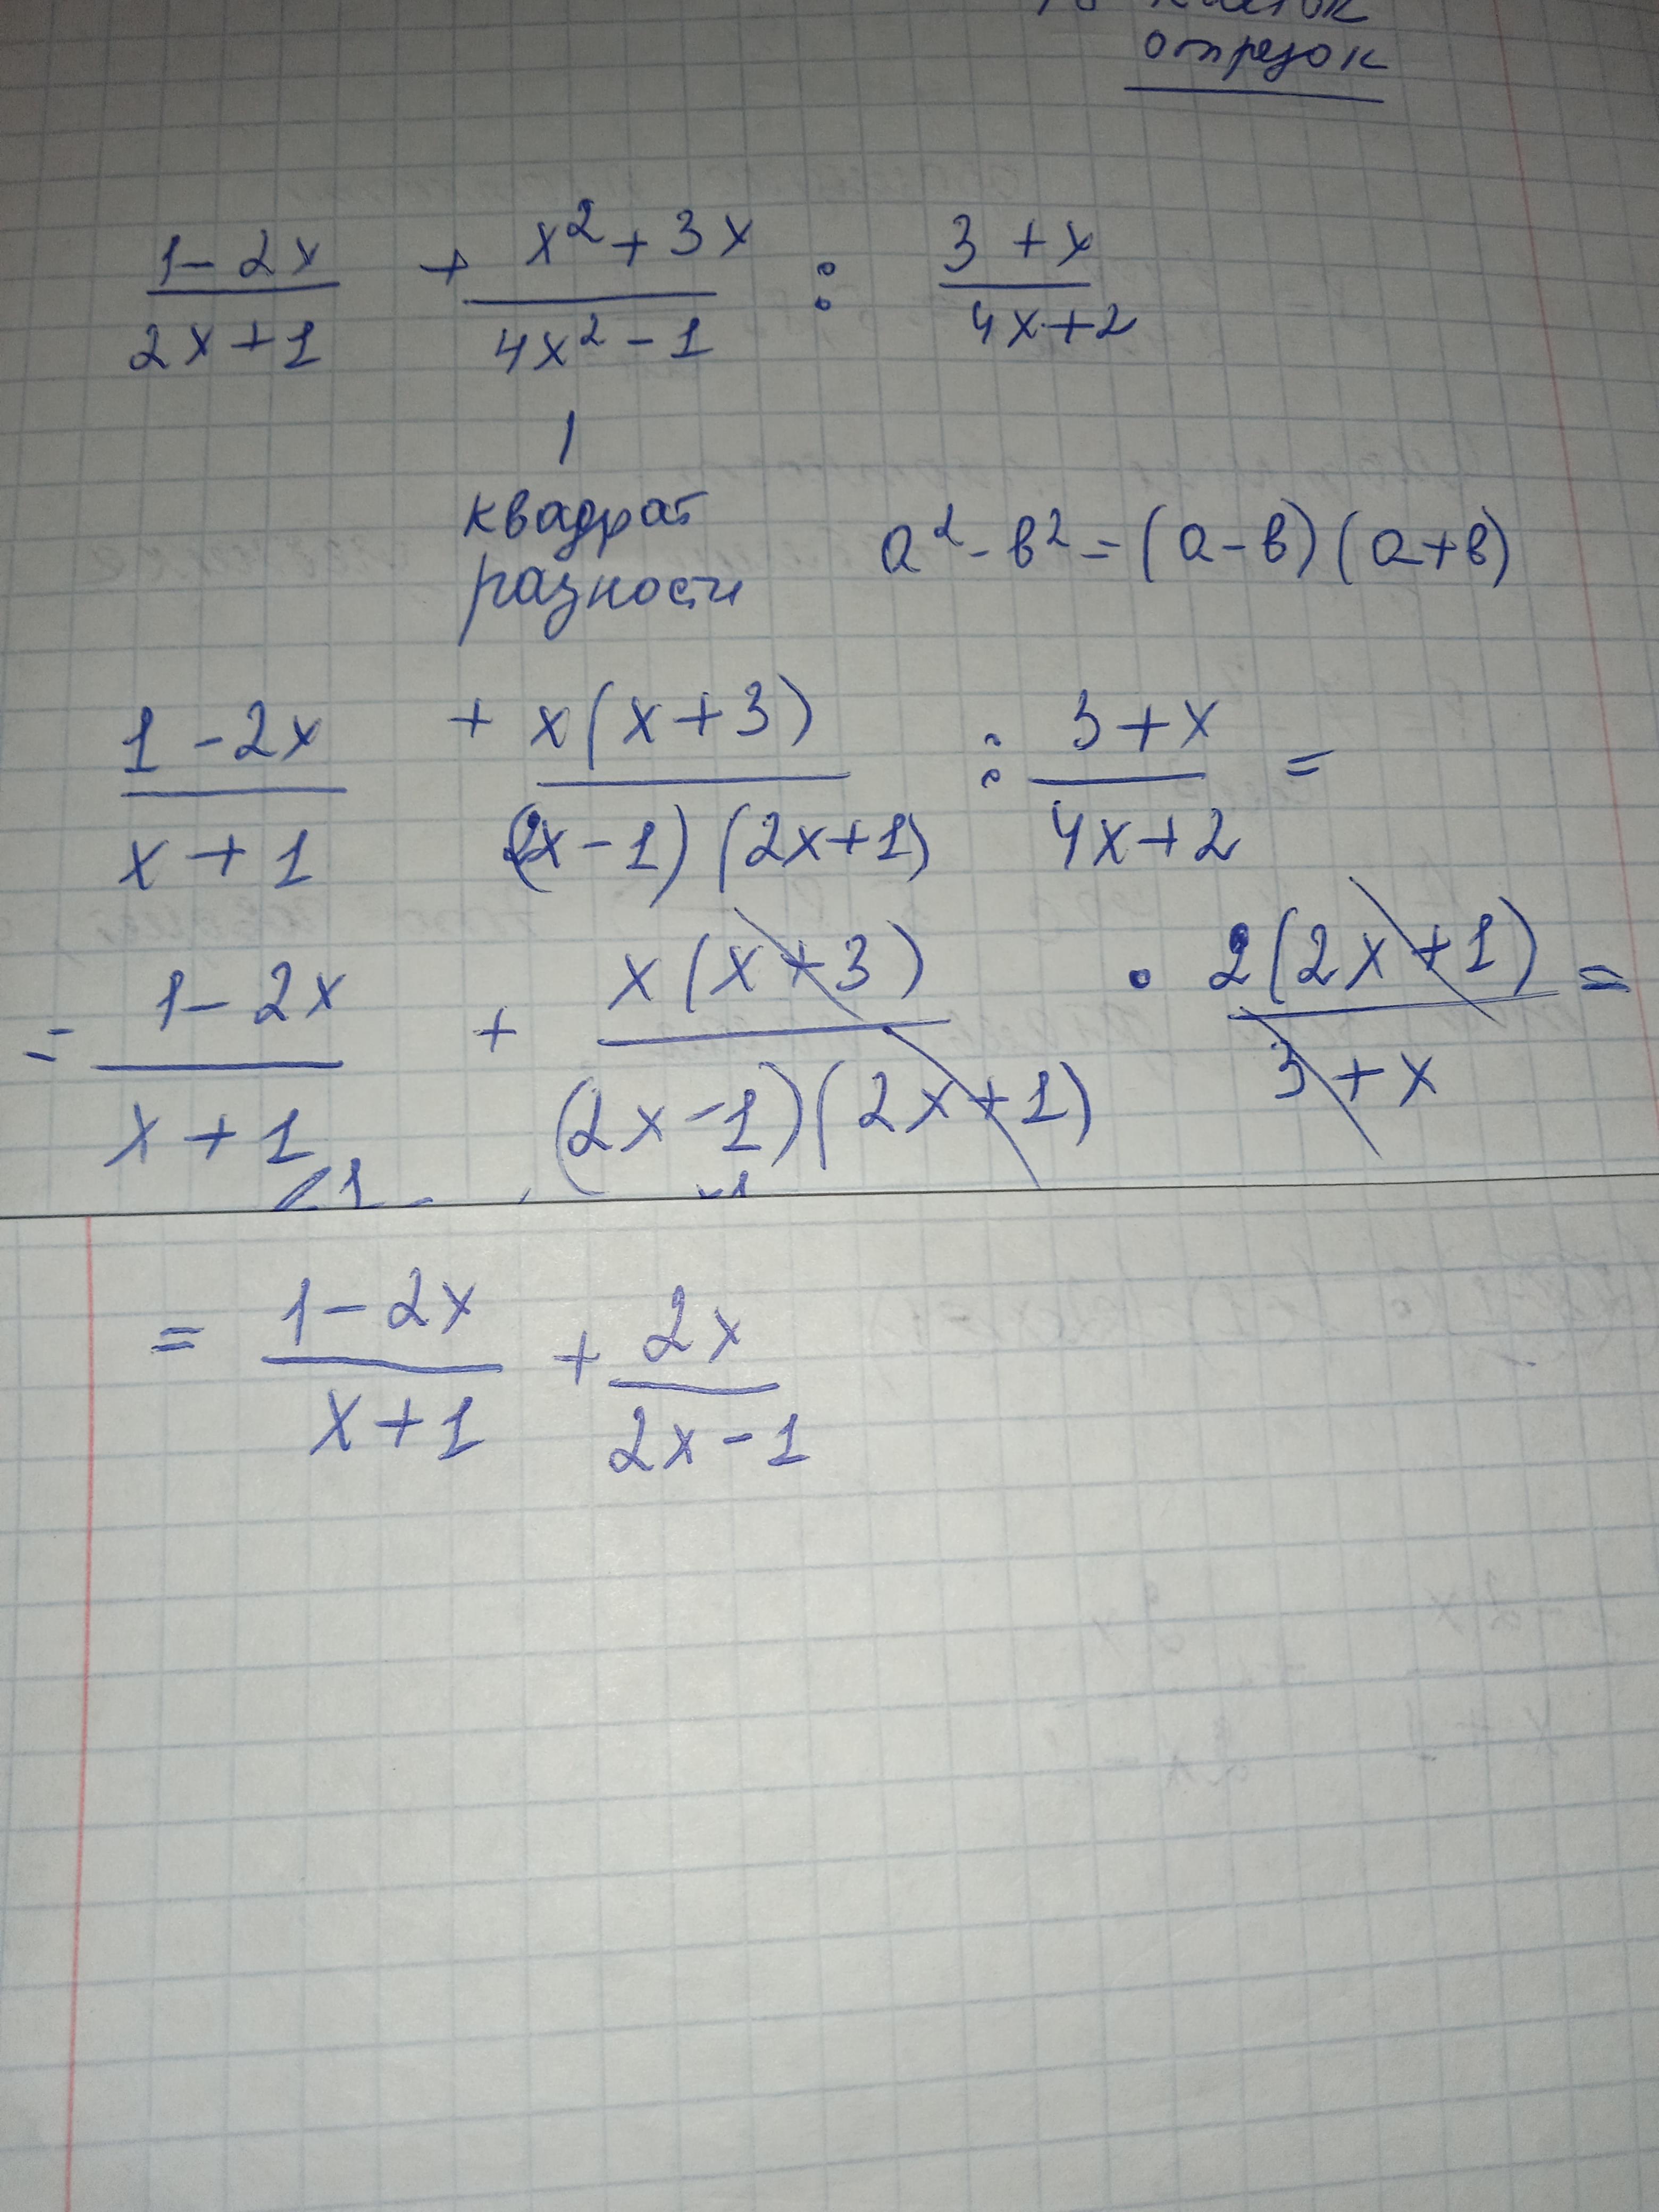 отрезок
1-2x / 2x+1 + x²+3x / 4x²-1 : 3+x / 4x+2
квадрат
разности
a²-в²=(a-в)(a+в)
1-2x / x+1 + x(x+3) / (2x-1)(2x+1) : 3+x / 4x+2 =
= 1-2x / x+1 + x(x+3) / (2x-1)(2x+1) • 2(2x+1) / 3+x =
= 1-2x / x+1 + 2x / 2x-1